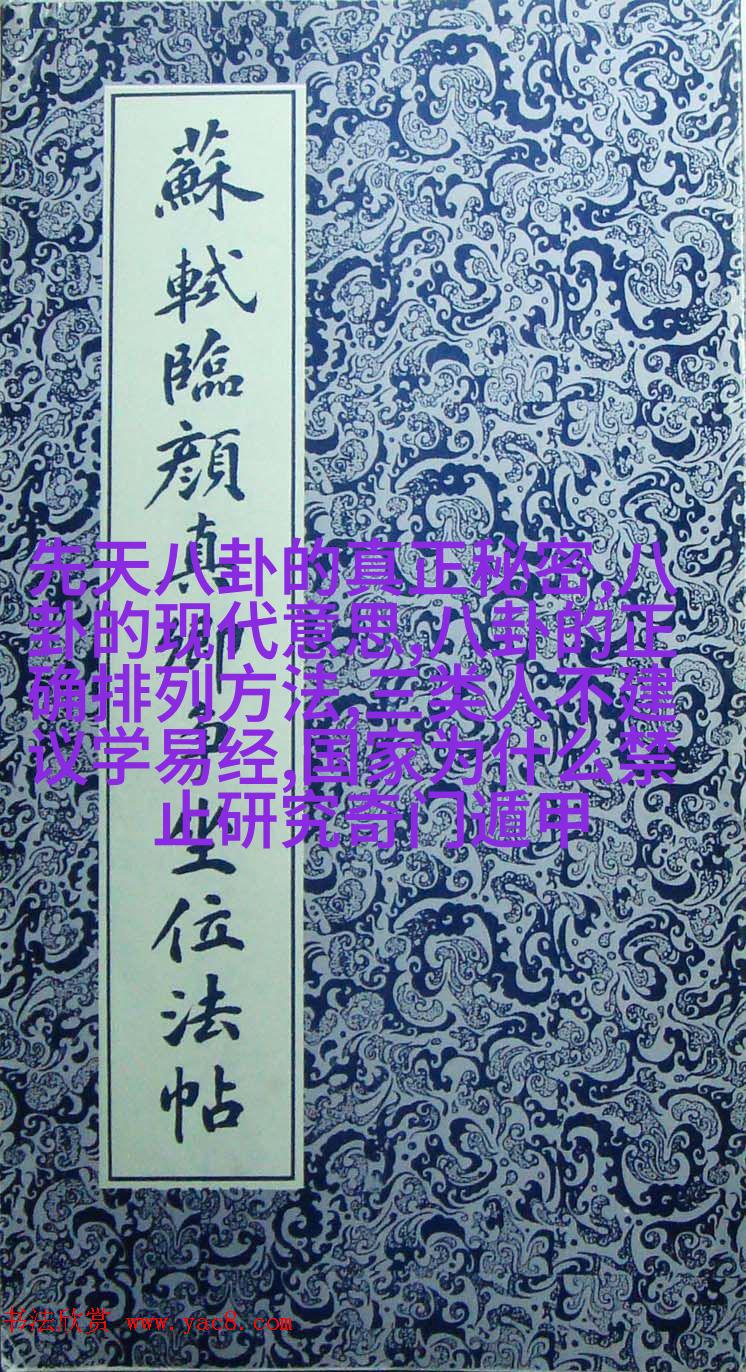 蘇軾臨顔真卿争坐位法帖
先天八卦的真正秘密,八
卦的现代意思,八卦的正
确排列方法,三类人不建
议学易经,国家为什么禁
止研究奇门遁甲
书法欣赏 www.yac8.com